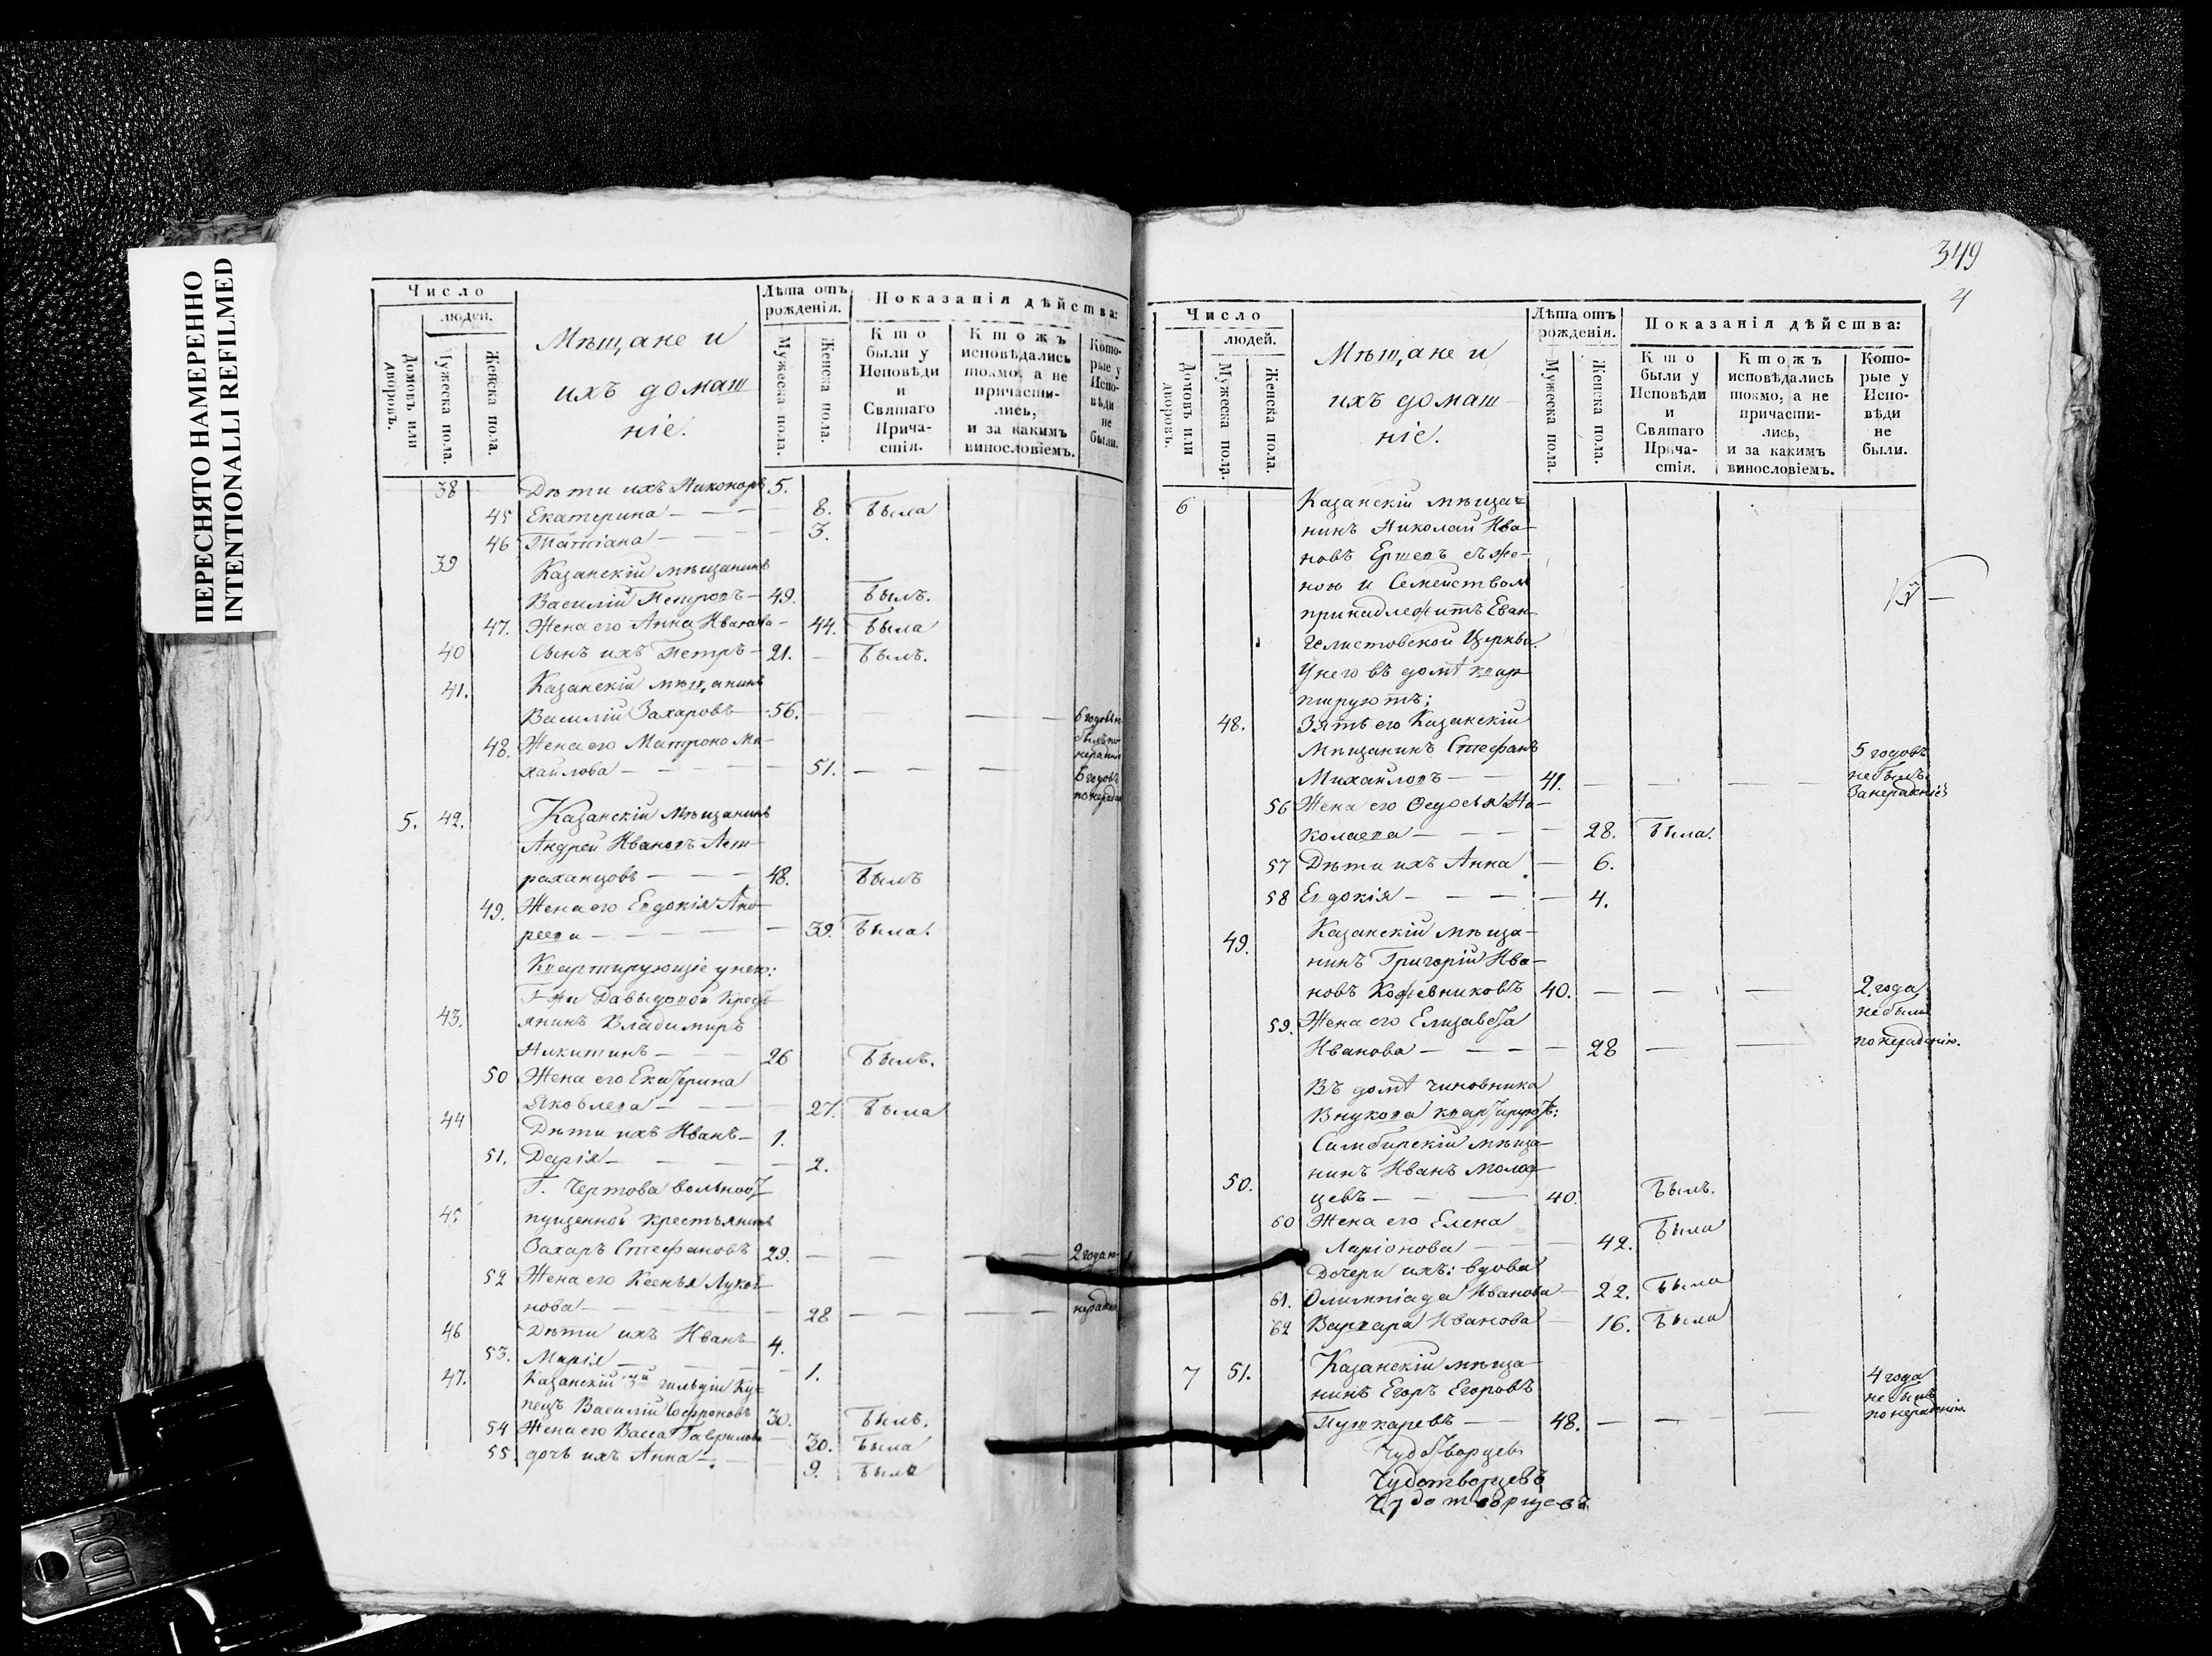 ПЕРЕСНЯТО НАМЕРЕННО
INTENTIONALLI REFILMED
Число
людей.
Домовъ или дворовъ.
Мужеска пола.
Женска пола.
Мѣщане и
ихъ домаш
ніе.
Лѣта отъ рожденія.
Мужеска пола.
Женска пола.
Показанія дѣйства:
Кто были у Исповѣди и Святаго Прича-стія.
Ктожъ исповѣдались токмо, а не причасти-лись, и за какимъ винословіемъ.
Кото-рые у Испо-вѣди не были.
38 Дѣти ихъ Никоноръ 5.
45 Екатерина — 8. Была
46 Татіана — 3.
39 Казанскій мѣщанинъ
Василій Петровъ — 49. Былъ.
47. Жена его Анна Иванова — 44. Была
40 Сынъ ихъ Петръ — 21. — Былъ.
41. Казанскій мѣщанинъ
Василій Захаровъ 56. — — 6 годовъ
48. Жена его Матрона Ми-
хайлова — 51. — — — 6 годовъ
5. 42. Казанскій Мѣщанинъ
Андрей Ивановъ Аст-
раханцовъ — 48. Былъ
49. Жена его Евдокія Анд-
реева — 39. Была.
Квартирующіе у него:
Г-жи Давыдовой Кресть
43. янинъ Владимиръ
Никитинъ — 26 Былъ.
50 Жена его Екатерина
Яковлева — 27. Была
44 Дѣти ихъ Иванъ — 1.
51. Дарія — 2.
Г. Чертова вольноот
45 пущенной крестьянинъ
Захаръ Стефановъ 29. — — — 2 года
52 Жена его Ксенья Лукоя-
нова — 28 — — —
46 Дѣти ихъ Иванъ 4.
53. Марія — 1.
47. Казанскій 3й гильдіи Ку-
пецъ Василій Софроновъ 30. Былъ.
54 Жена его Васса Гаврилова — 30. Была
55. дочь ихъ Анна — 9. Была
349
4
Число
людей.
Домовъ или дворовъ.
Мужеска пола.
Женска пола.
Мѣщане и
ихъ домаш
ніе.
Лѣта отъ рожденія.
Мужеска пола.
Женска пола.
Показанія дѣйства:
Кто были у Исповѣди и Святаго Прича-стія.
Ктожъ исповѣдались токмо, а не причасти-лись, и за какимъ винословіемъ.
Кото-рые у Испо-вѣди не были.
6 Казанскій мѣща=
нинъ Николай Ива-
новъ Ершовъ съ же-
ною и Семействомъ
принадлежитъ Еван-
гелистовской Церкви.
У него въ домѣ квар
тируютъ;
48. Зять его Казанскій
Мѣщанинъ Стефанъ 5 годовъ
Михайловъ — 41. — — — не былъ
за нерадніе
56 Жена его Ѳедосья Ни-
колаева — 28. Была.
57 Дѣти ихъ Анна — 6.
58 Евдокія — 4.
49. Казанскій мѣща-
нинъ Григорій Ива-
новъ Кожевниковъ 40. — — — 2. года
не были
59. Жена его Елизавета
Иванова — 28 — — по нерадѣнію.
Въ домѣ чиновника
Внукова квартируютъ:
Симбирскій мѣща-
50. нинъ Иванъ Молод-
цевъ — 40. Былъ.
60 Жена его Елена
Ларіонова — 42. Была
Дочери ихъ: вдова
61. Олимпіада Иванова — 22. Была
62 Варвара Иванова — 16. Была
7 51. Казанскій мѣща-
нинъ Егоръ Егоровъ 4 года
не былъ
Пушкаревъ — 48. — — — по нерадѣнію
Чудотворцевъ
Чудотворцевъ
Чудотворцевъ